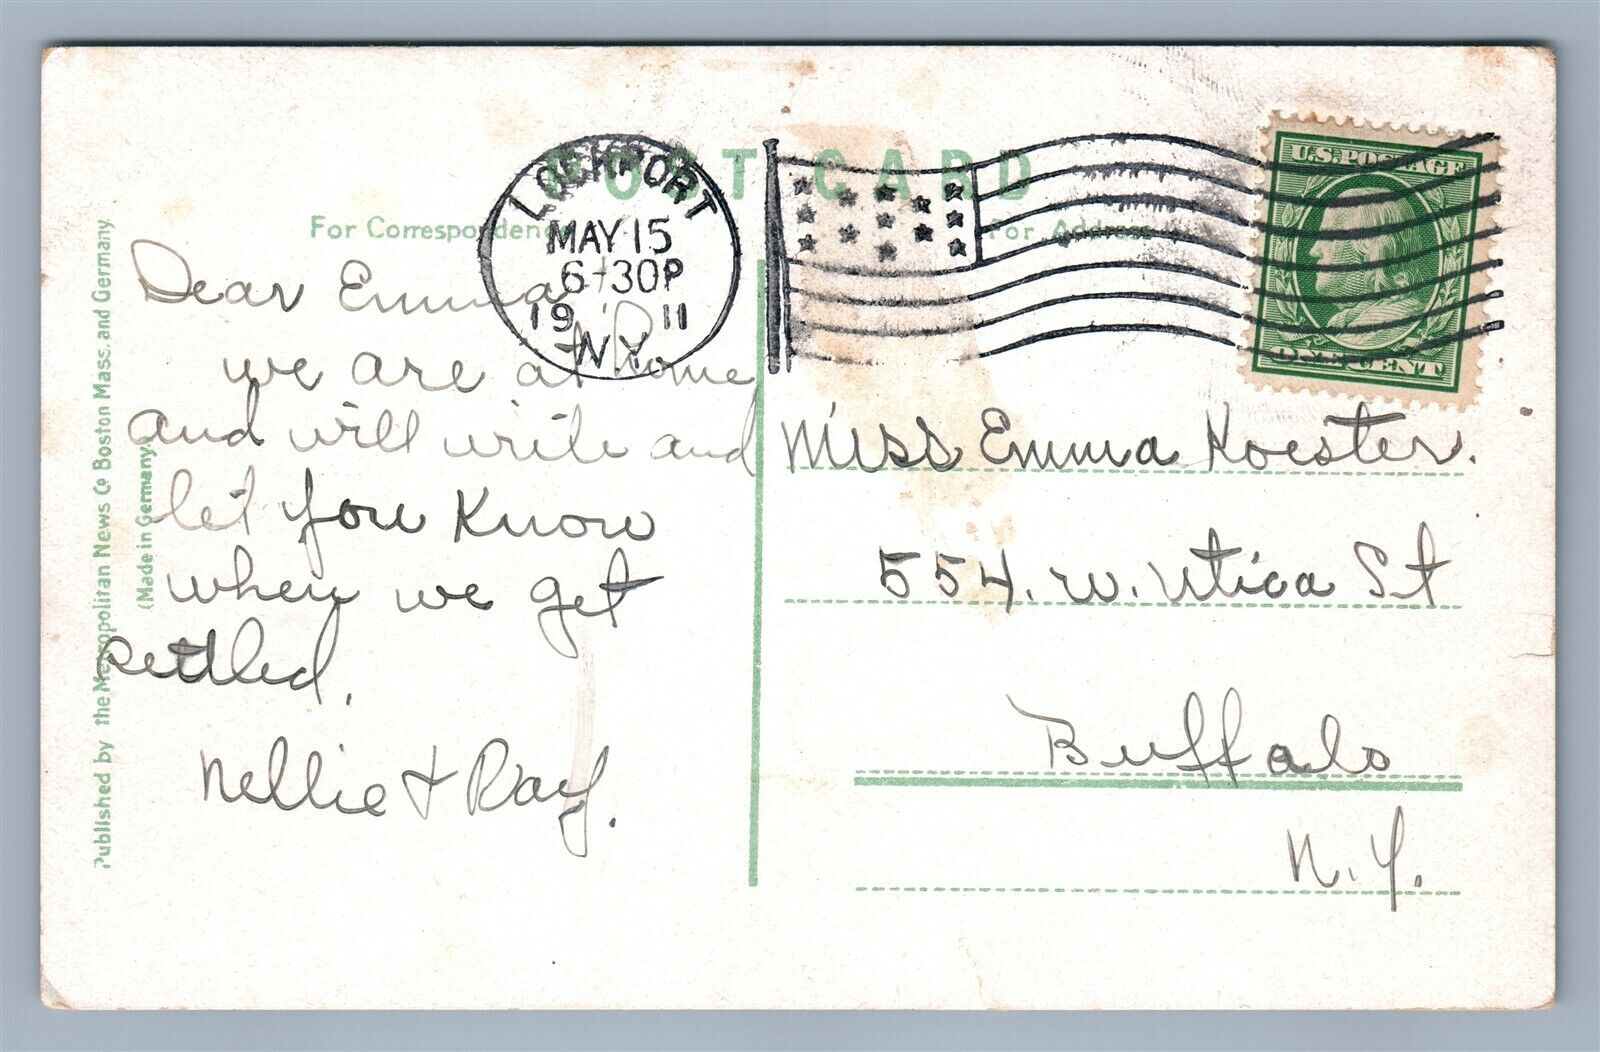 POST CARD
For Correspondence
For Address
LOCKPORT
MAY 15
6-30P
19 11
N.Y.
U.S. POSTAGE
ONE CENT
Dear Emma
we are at home
and will write and
let you know
when we get
settled.
Nellie & Ray.
Miss Emma Koester.
554. W. Utica St
Buffalo
N.Y.
Published by the Metropolitan News Co Boston Mass. and Germany
(Made in Germany)